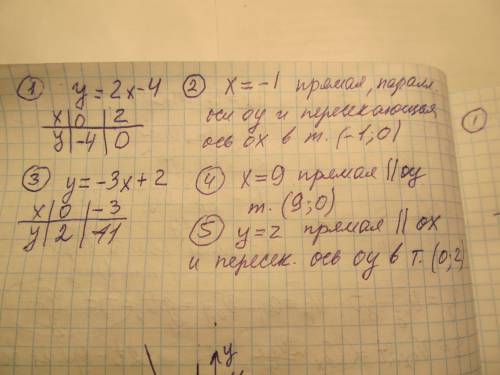 ① y = 2x-4
x | 0 | 2
y | -4 | 0
② x = -1 прямая, паралл.
оси оу и пересекающая
ось ох в т. (-1; 0)
③ y = -3x + 2
x | 0 | -3
y | 2 | -11
④ x = 9 прямая || оу
т. (9; 0)
⑤ y = 2 прямая || ох
и пересек. ось оу в т. (0; 2)
①
y